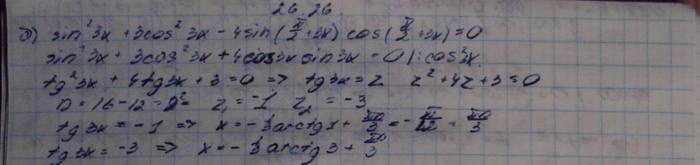 26.26.
д) sin²3x + 3cos²3x - 4sin(π/2+3x) cos(π/2+3x)=0
sin²3x + 3cos²3x + 4cos3x sin3x = 0 |: cos²3x
tg²3x + 4tg3x + 3 = 0 => tg3x = z z² + 4z + 3 = 0
D = 16 - 12 = 2² z₁ = -1 z₂ = -3
tg3x = -1 => x = - ⅓arctg1 + πn/3 = - π/12 + πn/3
tg3x = -3 => x = - ⅓arctg3 + πn/3